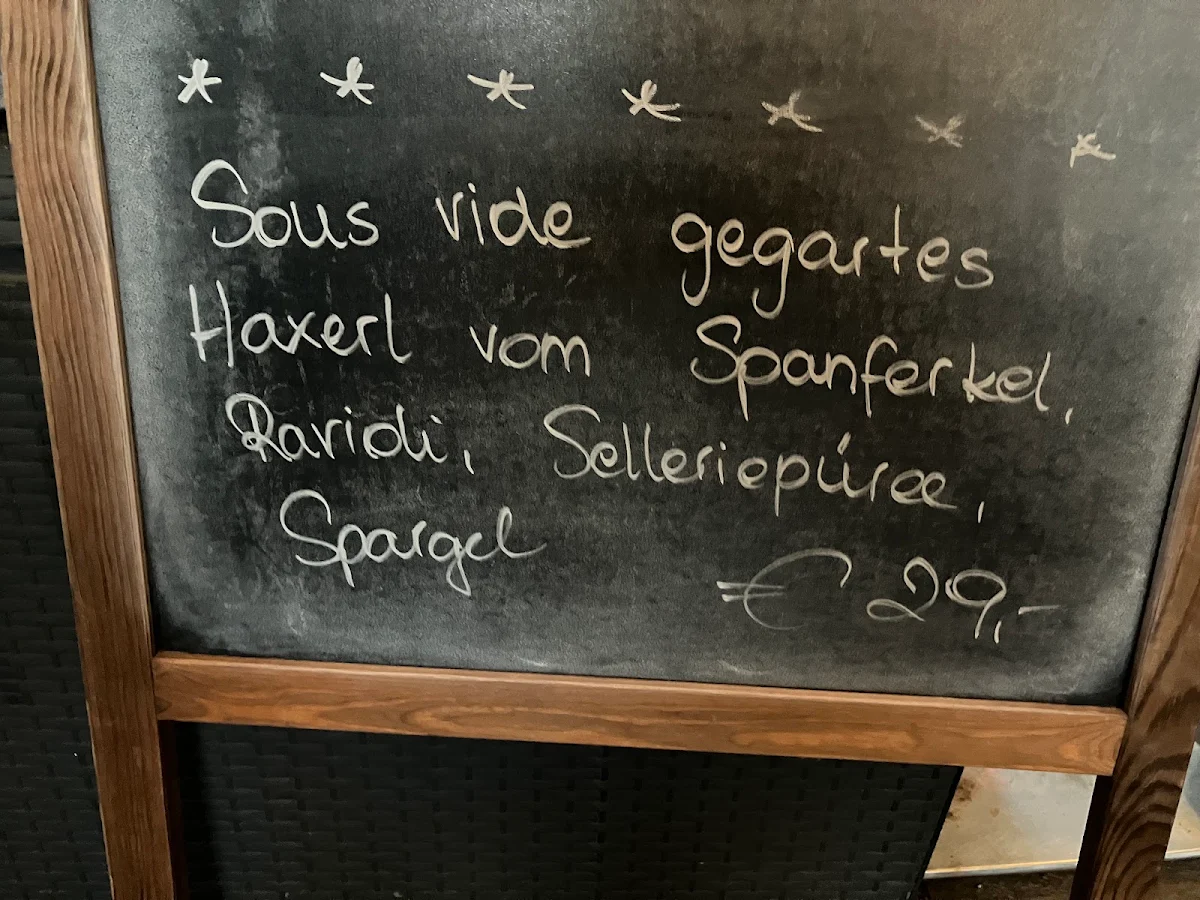 * * * * * * *
Sous vide gegartes
Haxerl vom Spanferkel,
Ravioli, Selleriepüree,
Spargel
€ 29,-